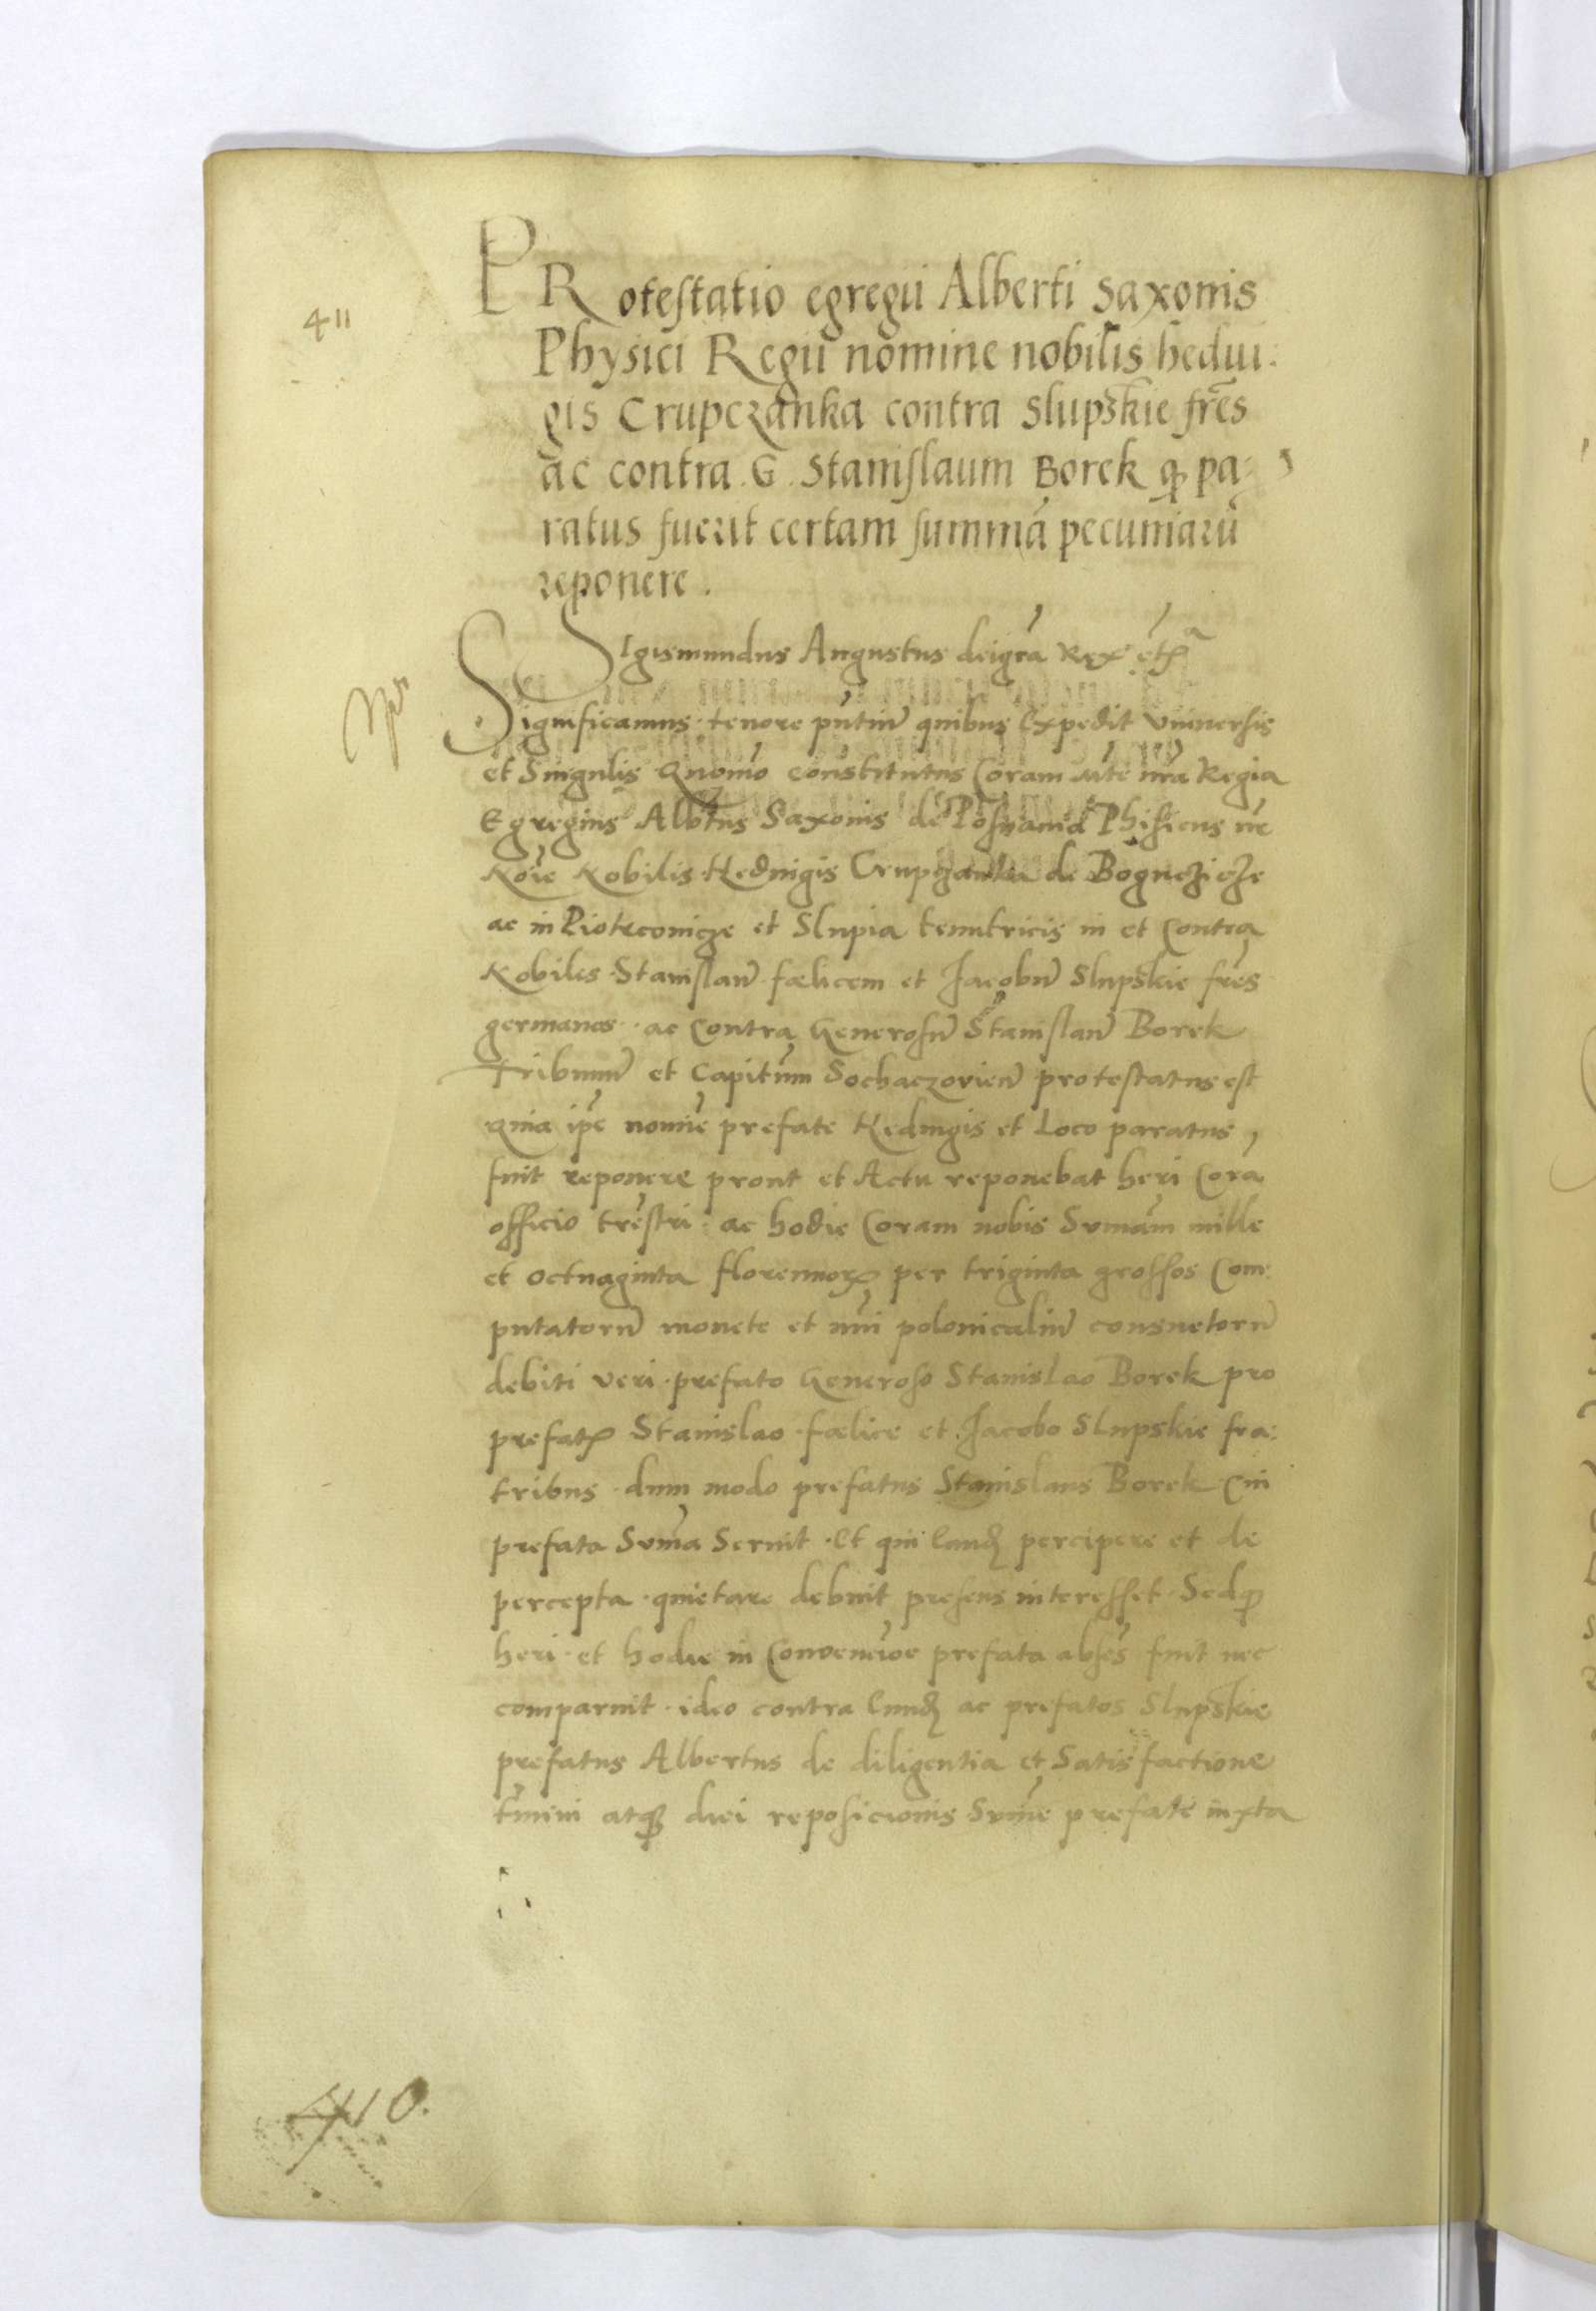 411
PRotestatio egregii Alberti Saxonis
Physici Regii nomine nobilis hedui:
gis Crupczanka contra Slupskie fr̃es
ac contra .G. Stanislaum Borek ꝙ pa:
ratus fuerit certam summã pecuniarũ
reponere.
SIgismundus Augustus dei gr̃a Rex etc̃
Significamus tenore pñtiũ quibus Expedit Vniuersis
et Singulis Quomõ constitutus Coram Mte nr̃a Regia
Egregius Albtus Saxonis de Posnania Phisicus
Nobilis Heduigis Crupczanka de
ac in et Slupia tenutricis in et Contra
Nobiles Stanislaũ fælicem et Jacobũ Slupskie fr̃es
germanos ac Contra Generosũ Stanislaũ Borek
Tribunũ et Capitũm Sochaczouieñ protestatus est
Quia ip̃e nomie prefate Heduigis et Loco paratus
fuit reponere prout et Actu reponebat heri Corã
officio trestri ac hodie Coram nobis Summam mille
et octuaginta florenorꝝ per triginta grossos Com:
putatorũ monete et nũi polonicaliũ consuetorũ
debiti veri prefato Generoso Stanislao Borek pro
prefatꝭ Stanislao fælice et Jacobo Slupskie fra:
tribus dum modo prefatus Stanislaus Borek Cui
prefata Suma Seruit Et qui Eandẽ percipere et de
percepta quietare debuit presens interesset Sed ꝙ
heri et hodie in prefata absẽs fuit nec
comparuit ideo contra Eundẽ ac prefatos Slupskie
prefatus Albertus de diligentia et Satisfactione
tmini atqꝫ diei reposicionis Sume prefate iuxta
410.